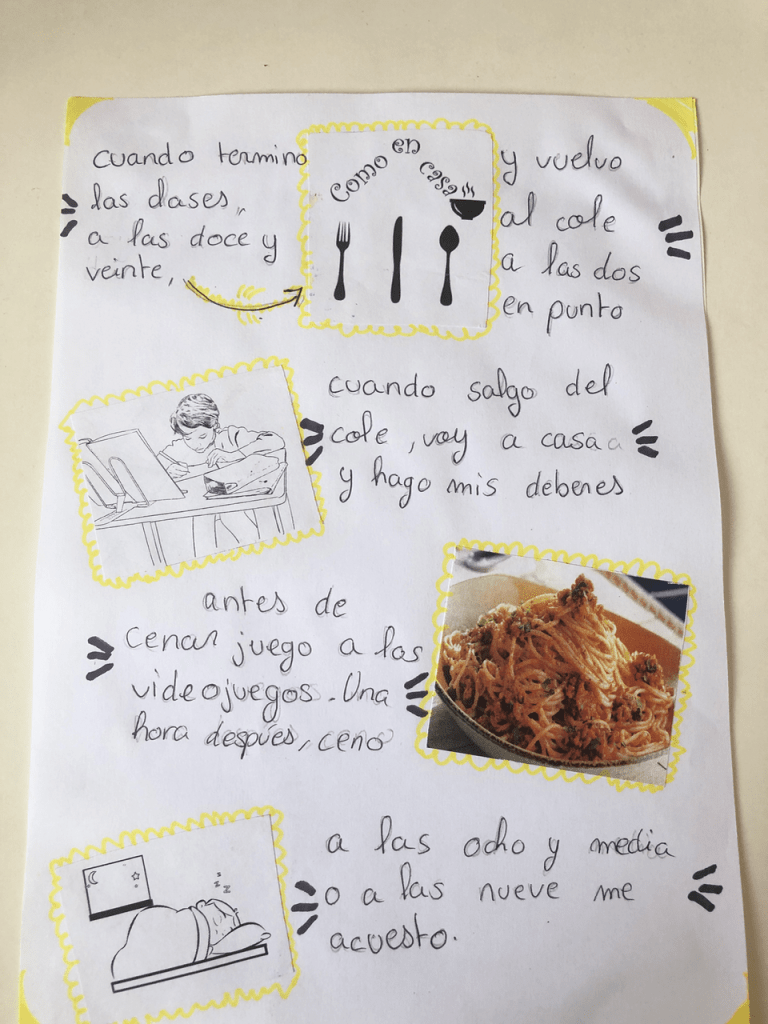 cuando termino
las clases,
a las doce y
veinte,
Como en casa
y vuelvo
al cole
a las dos
en punto
cuando salgo del
cole, voy a casa
y hago mis deberes
antes de
cenar juego a los
videojuegos. Una
hora despues, ceno
z z z
a las ocho y media
o a las nueve me
acuesto.